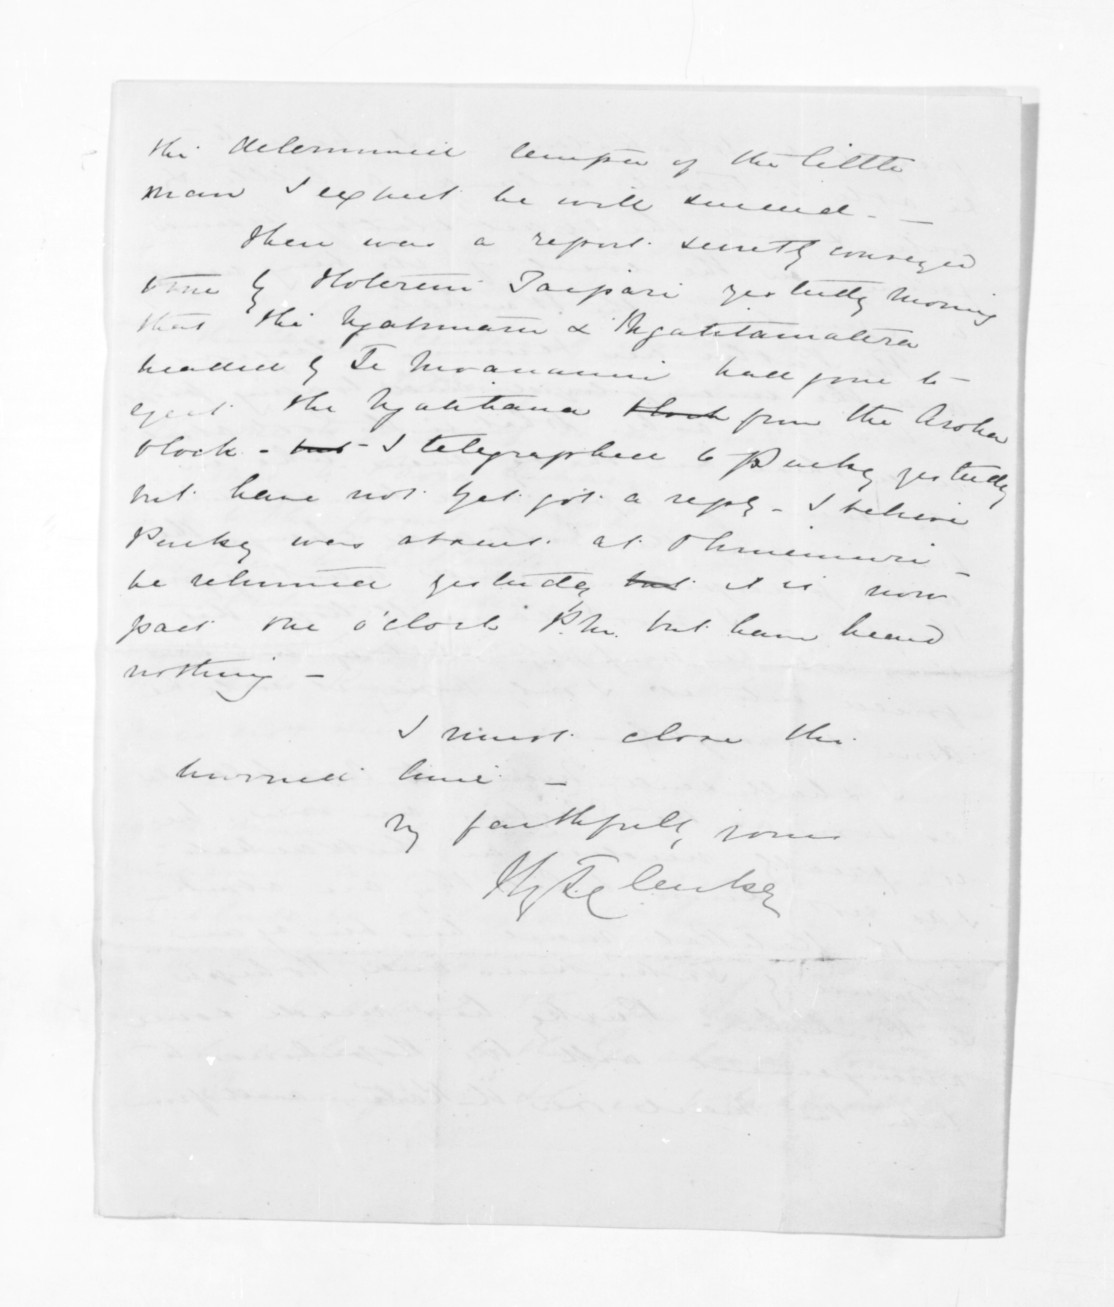 the determined temper of the little
man I expect he will succeed. —
There was a report secretly conveyed
to me by Hotereni Taipari yesterday morning
that the Ngatimaru & Ngatitamatera
headed by Te Moananui had gone to
eject the Ngatihaua block from the Aroha
block - but - I telegraphed to Puckey yesterday
but have not yet got a reply - I believe
Puckey was absent at Ohinemuri -
he returned yesterday but it is now
past one o'clock P.M. but have heard
nothing -
I must close this
hurried line -
Vy faithfully yours
Hy T. Clarke